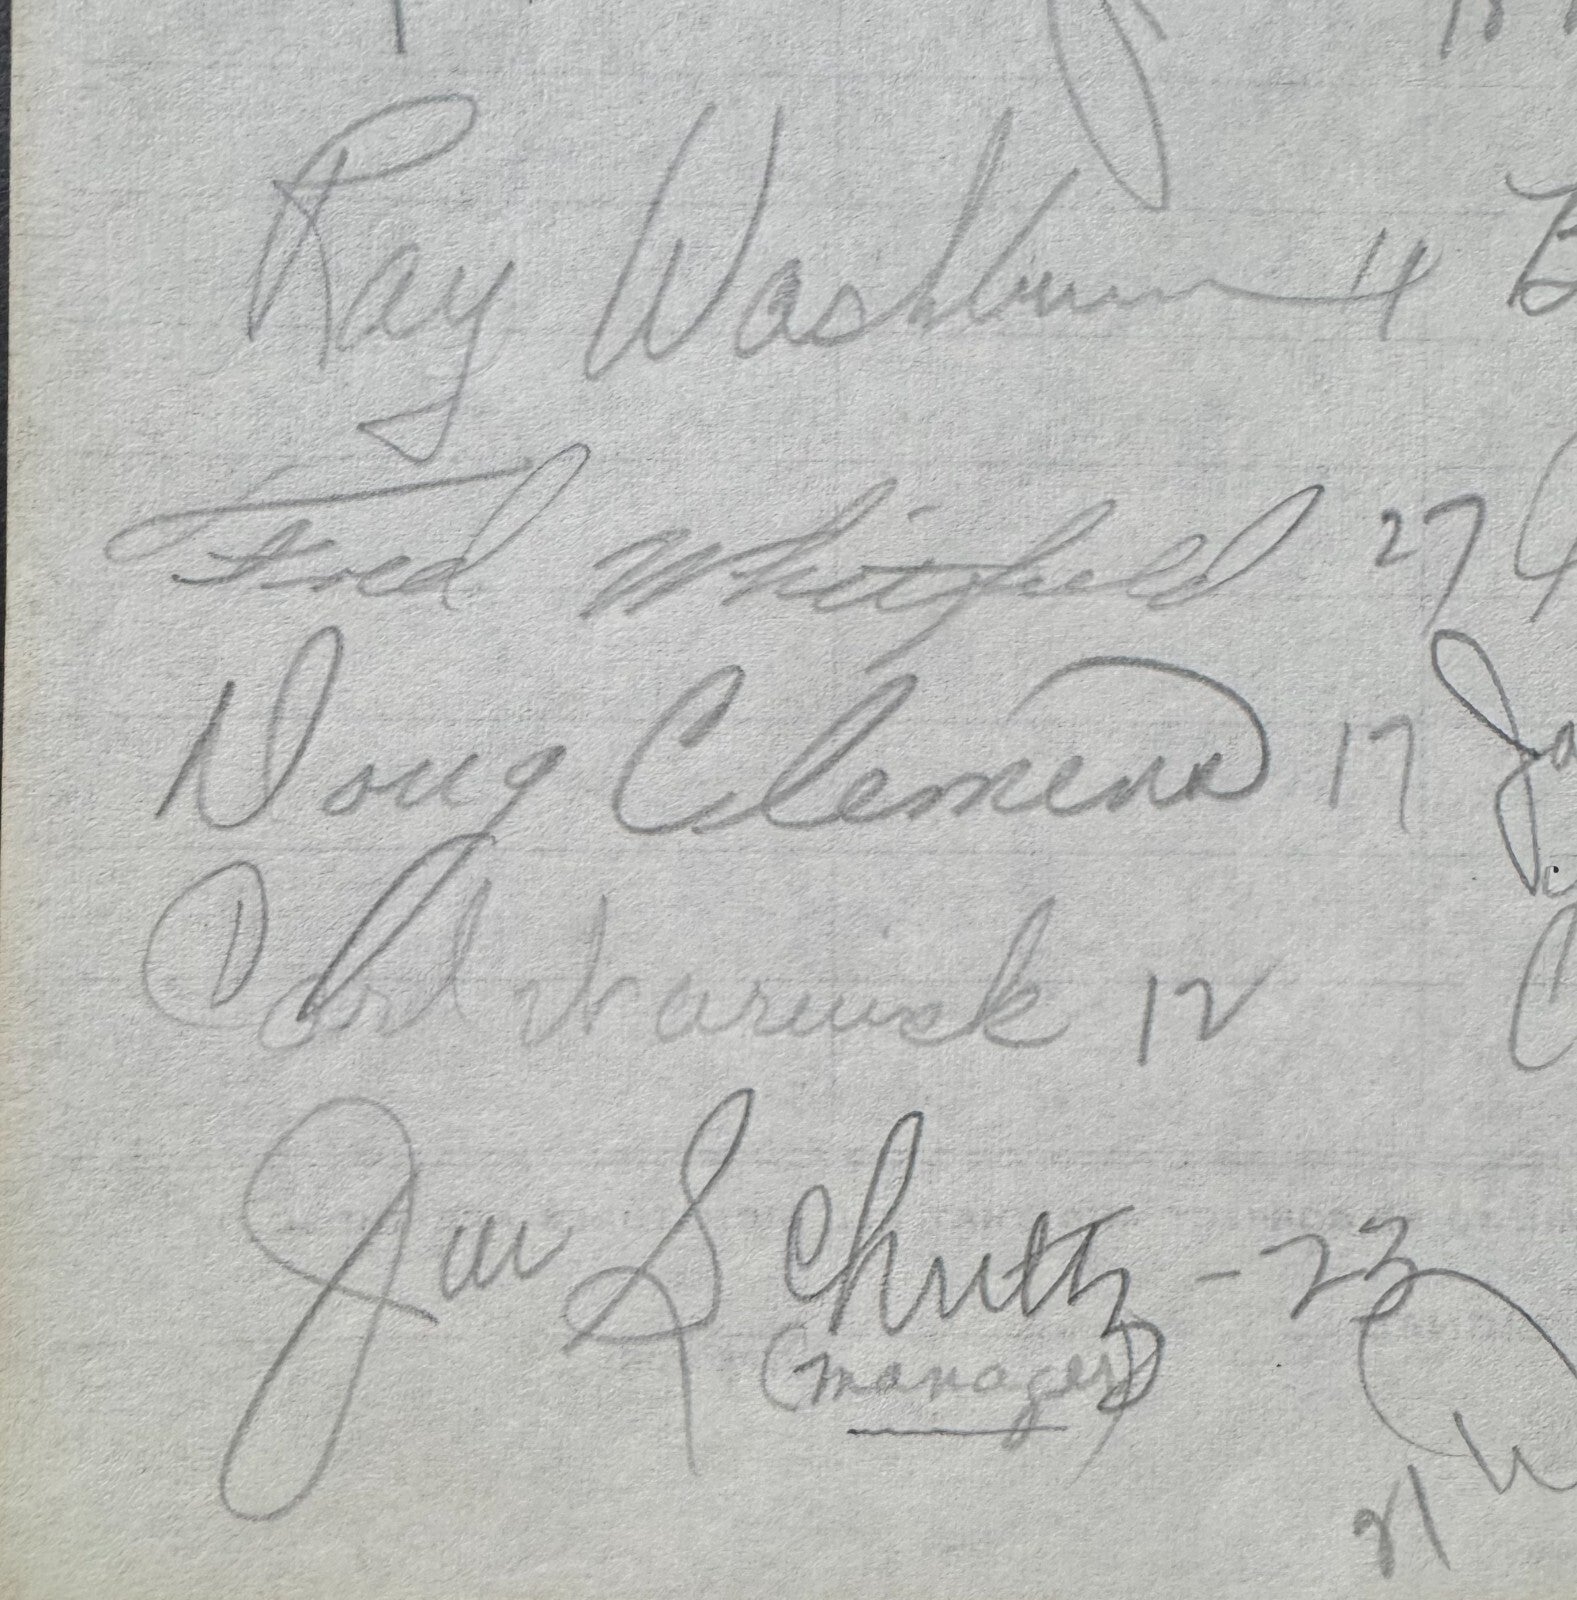 Ray Washburn 11
Fred Whitfield 27
Doug Clemens 17
Carl Warwick 12
Jim Schultz - 23
(manager)
21